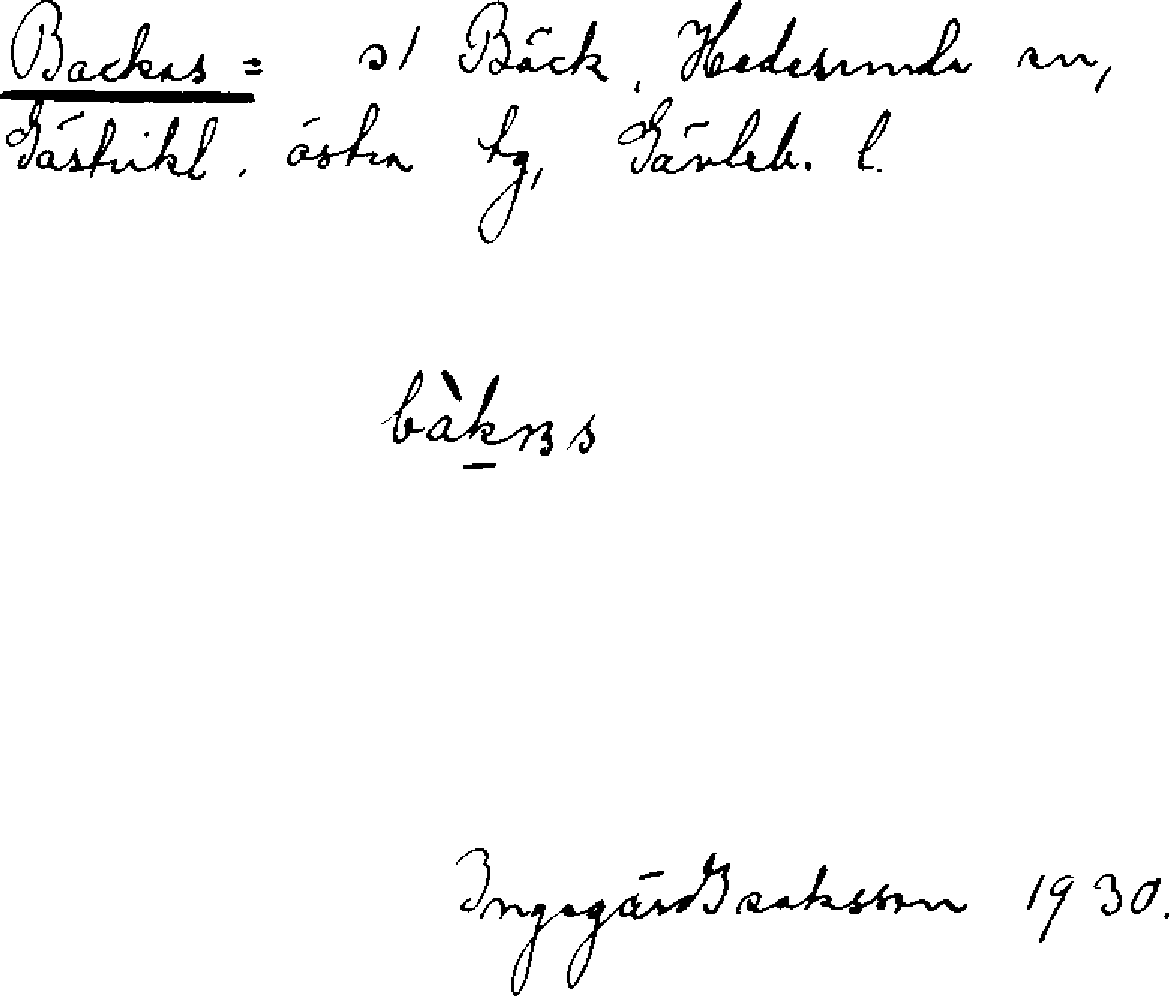 Backas = s/ Bäck, Hedesunda sn,
Gästrikl. östra tg, Gävleb. l.
bàkas
Ingegärd Isaksson 1930.